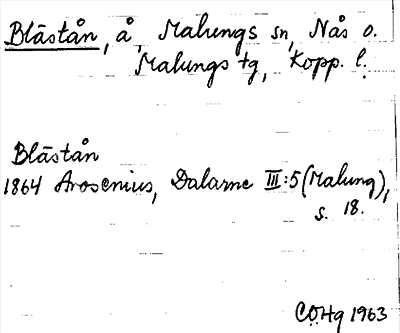 Blästån, å, Malungs sn, Nås o.
Malungs tg, Kopp. l.
Blästån
1864 Arosenius, Dalarne III:5 (Malung),
s. 18.
COHg 1963